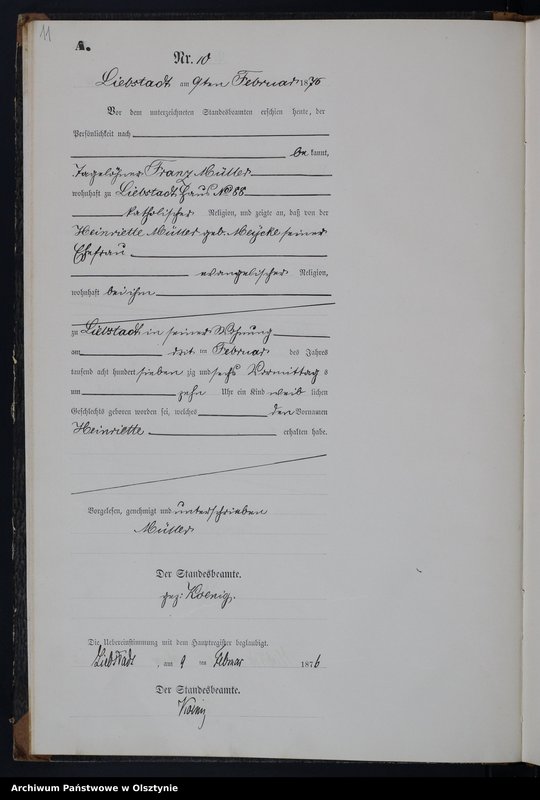 11
A.
Nr. 10
Liebstadt am 9ten Februar 1876
Vor dem unterzeichneten Standesbeamten erschien heute, der
Persönlichkeit nach
be kannt,
Tagelöhner Franz Müller
wohnhaft zu Liebstadt Haus No 88
katholischer Religion, und zeigte an, daß von der
Heinriette Müller geb. seiner
Ehefrau
evangelischer Religion,
wohnhaft bei ihm
zu Liebstadt in seiner Wohnung
am ten Februar des Jahres
tausend acht hundert sieben zig und sechs Vormittag s
um zehn Uhr ein Kind weib lichen
Geschlechts geboren worden sei, welches den Vornamen
Heinriette erhalten habe.
Vorgelesen, genehmigt und unterschrieben
Müller
Der Standesbeamte.
gez: Koenig.
Die Uebereinstimmung mit dem Hauptregister beglaubigt.
Liebstadt, am 9 ten Februar 1876
Der Standesbeamte.
Koenig
Archiwum Państwowe w Olsztynie